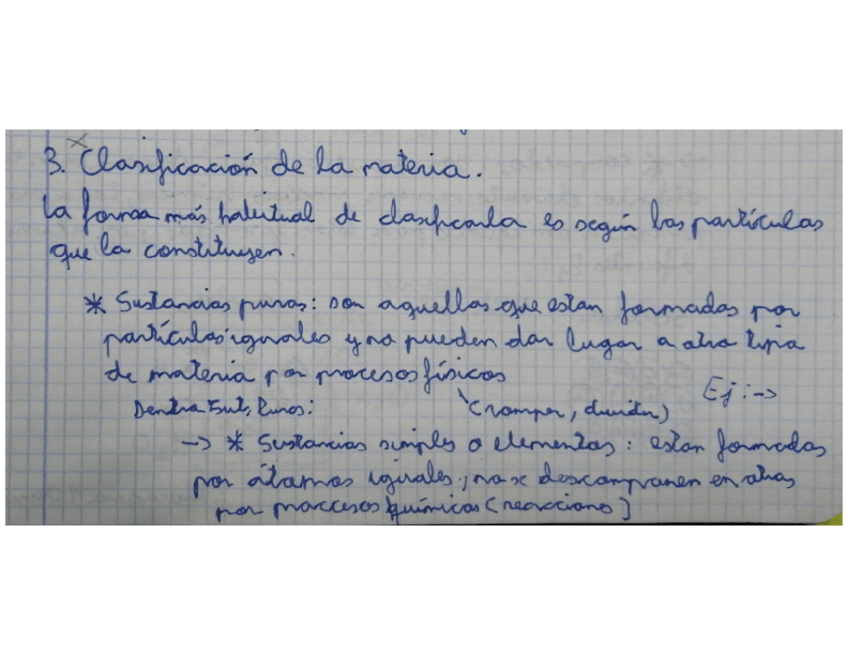 3. Clasificación de la materia.
La forma más habitual de clasificarla es según las partículas
que la constituyen.
* Sustancias puras: son aquellas que estan formadas por
partículas iguales y no pueden dar lugar a otro tipo
de materia por procesos físicos
Ej:->
Dentro Sust. Puras:
(romper, dividir)
-> * Sustancias simples o elementos: estan formadas
por átomos iguales, no se descomponen en otras
por proccesos químicos (reacciones)